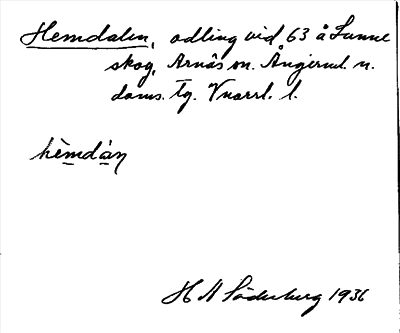 Hemdalen, odling vid 63 å Sunne
skog, Arnäs sn. Ångerml. n.
doms. Tg. Vnorrl. l.
hèmdán
H A Söderberg 1936